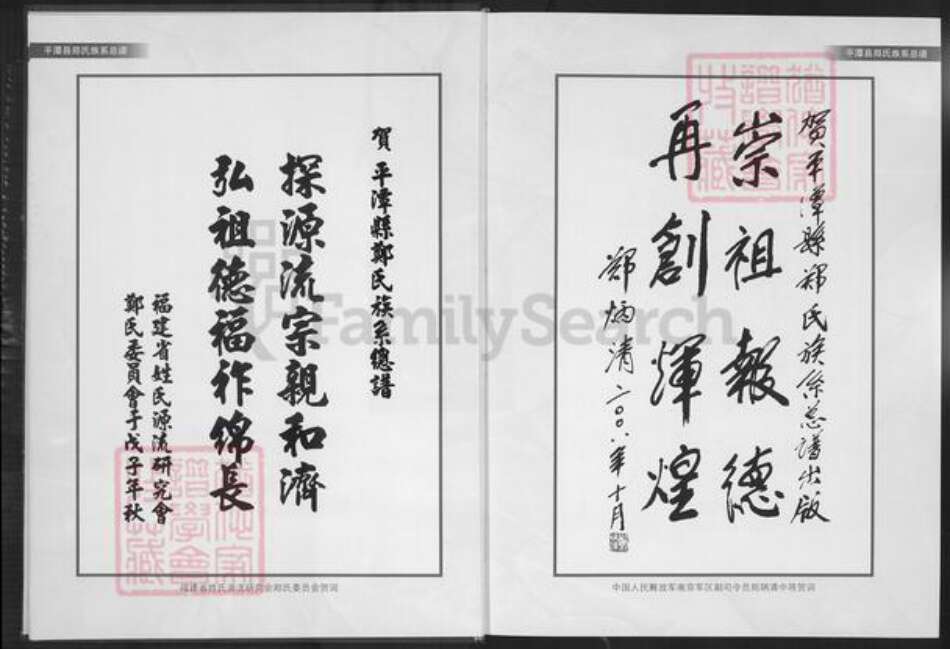 平潭县郑氏族系总谱
賀平潭縣鄭民族系總譜
探源流宗親和濟
弘祖德福祚綿長
福建省姓氏源流研究會
鄭氏委員會于戊子年秋
福建省姓氏源流研究会郑氏委员会贺词
平潭县郑氏族系总谱
贺平潭縣郑氏族系总谱出版
崇祖報德
再創輝煌
郑炳清二〇〇八年十月
中国人民解放军南京军区副司令员郑炳清中将贺词
FamilySearch